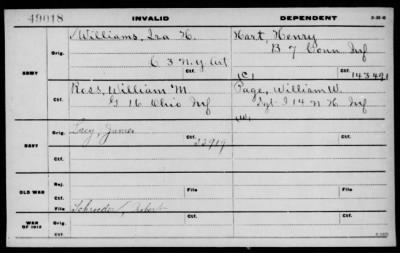 49018 INVALID DEPENDENT
ARMY
Orig. Williams, Ira H. Hart, Henry
C 3 N.Y. Art B 7 Conn Inf
(C) 143491
Ctf. Ross, William M. Page, William W.
G 16 Ohio Inf Sgt I 14 N H Inf
(W)
NAVY
Orig. Lacy, James
22919
Ctf.
OLD WAR
Rej.
Ctf. File Ctf. File
WAR OF 1812
File Schroeder, Robert Ctf.
Ctf.